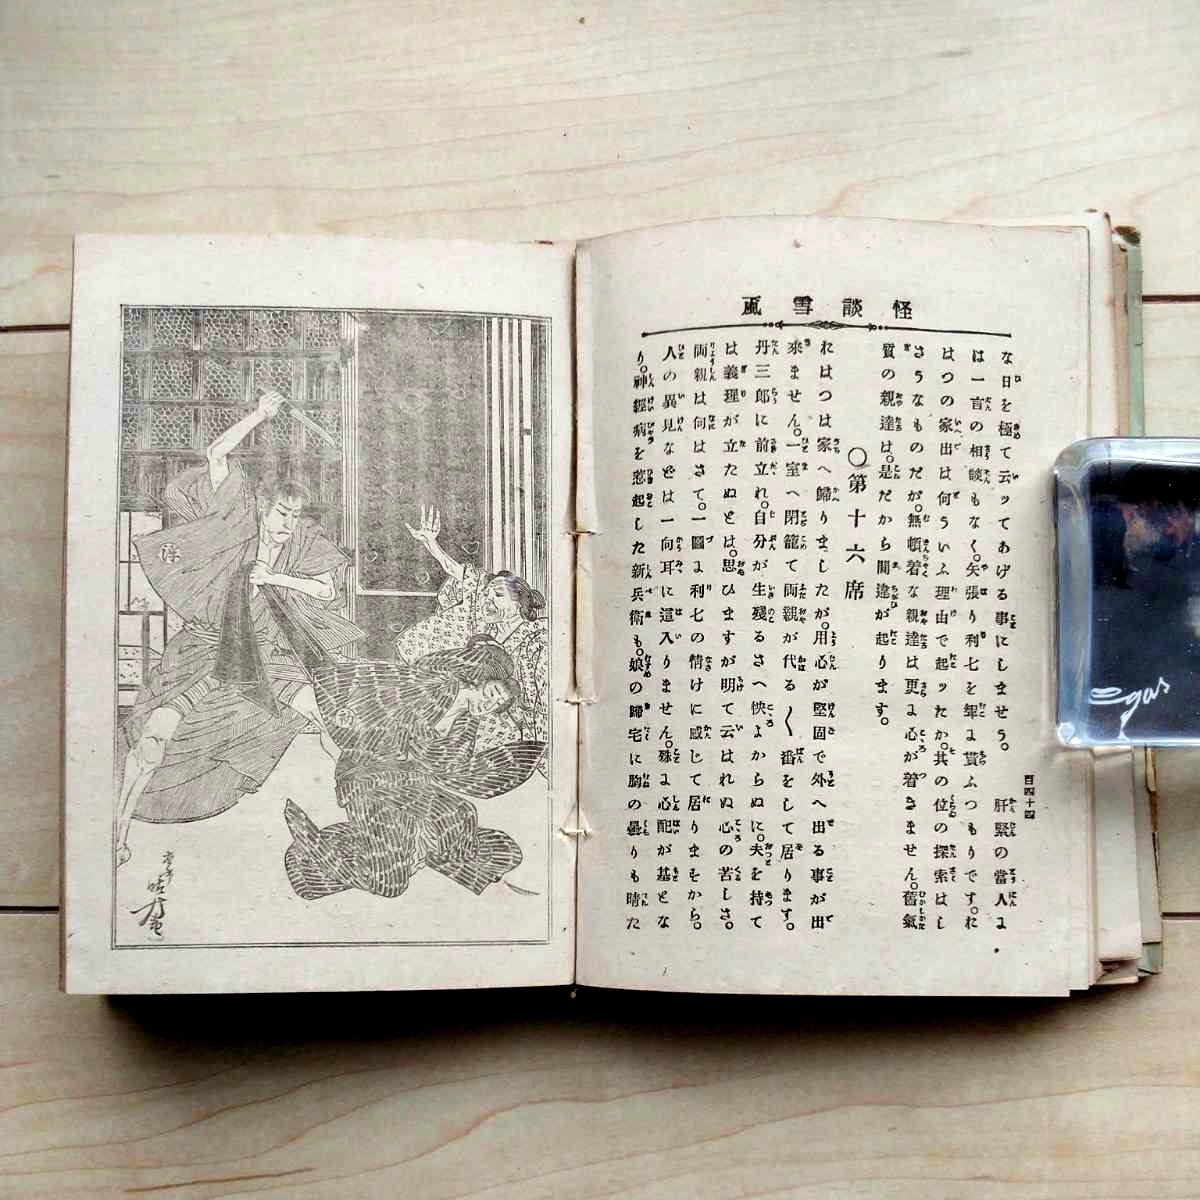 怪談雪颪
な日を極て云ッてあげる事にしませう。　肝緊の當人に
は一言の相談もなく。矢張り利七を聟に貰ふつもりです。れ
はつの家出は何ういふ理由で起ッたか。其の位の探索はし
さうなものだが。無頓着な親達は更に心が着きません。舊氣
質の親達は。是だから間違が起ります。
〇第十六席
れはつは家へ歸りましたが。用心が堅固で外へ出る事が出
來ません。一室へ閉籠て両親が代る〱番をして居ります。
丹三郎に前立れ。自分が生殘るさへ怏よからぬに。夫を持て
は義理が立たぬとは。思ひますが明て云はれぬ心の苦しさ。
両親は何はさて。一圖に利七の情けに感じて居りますから。
人の異見などは一向耳に這入りません。殊に心配が基とな
り。神經病を惹起した新兵衛も。娘の歸宅に胸の曇りも晴た
百四十四
Egas